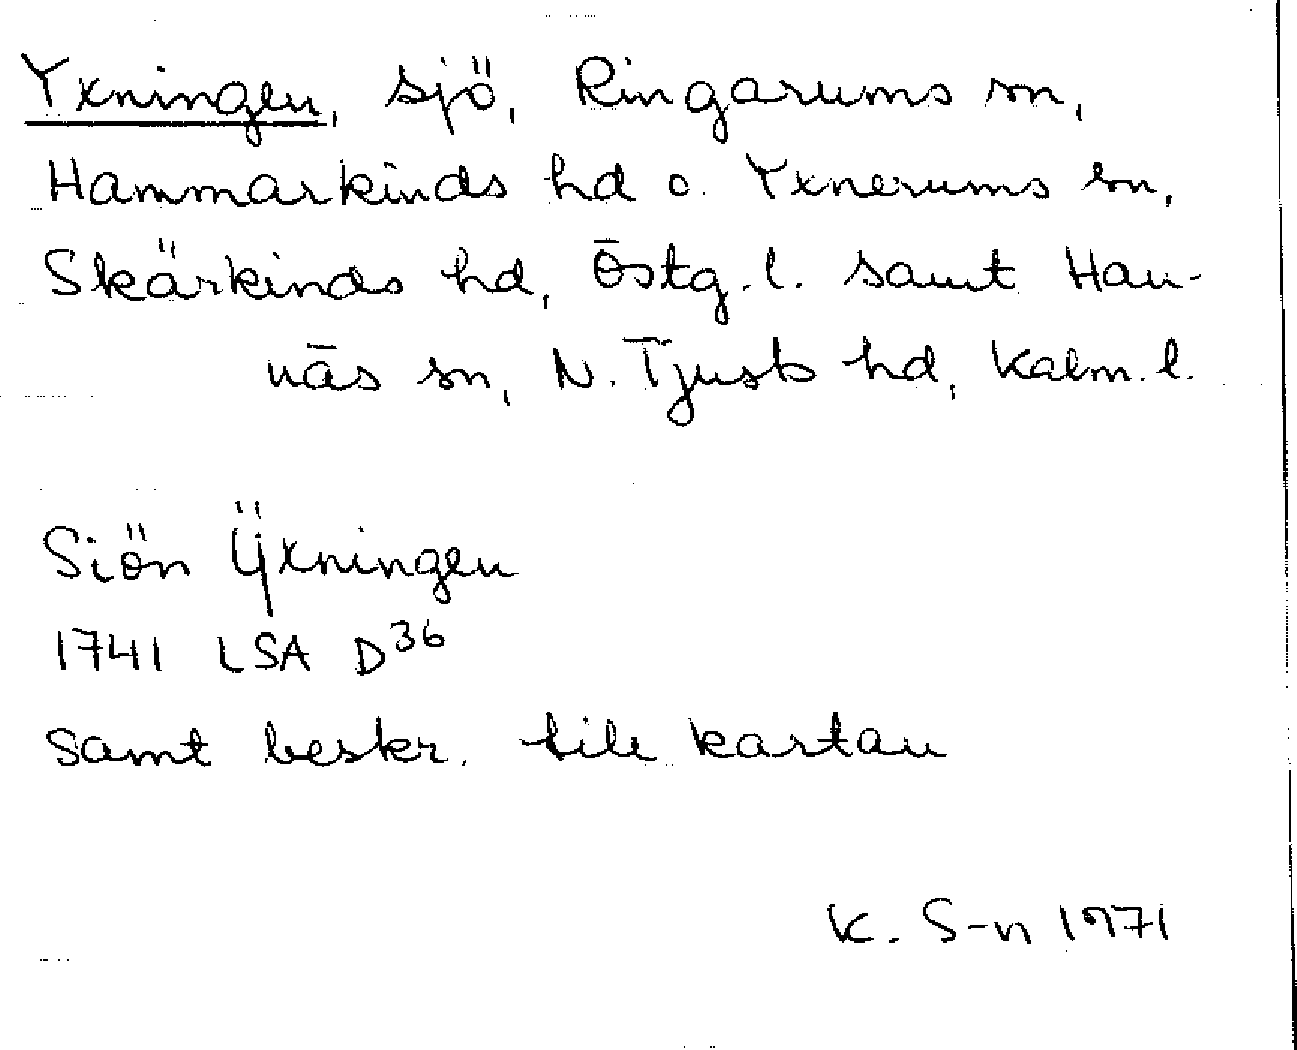 Yxningen, sjö, Ringarums sn,
Hammarkinds hd o. Yxnerums sn,
Skärkinds hd, Östg. l. samt Han-
näs sn, N. Tjusts hd, Kalm. l.
Siön Ÿxningen
1741 LSA D36
Samt beskr. till kartan
K. S-n 1971